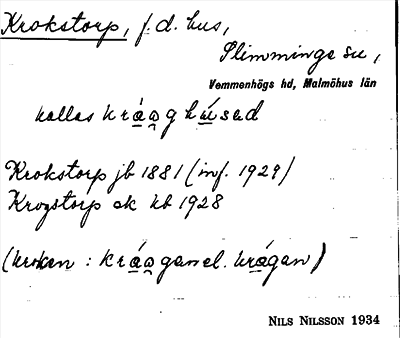 Krokstorp, f.d. hus,
Slimminge sn,
Vemmenhögs hd, Malmöhus län
kallas kråo̯ghúsed
Krokstorp jb 1881 (inf. 1929)
Krogstorp ek kb 1928
(kroken : kráo̯gan el. krágan)
NILS NILSSON 1934